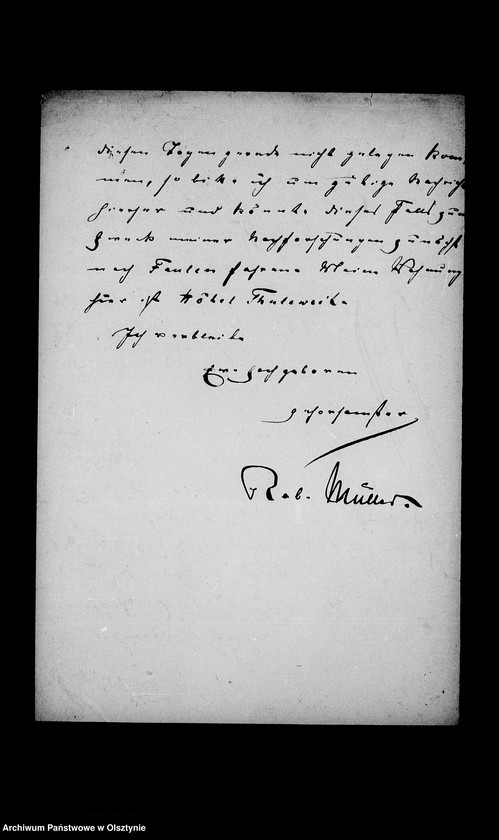 diesen Tagen gerade nicht gelegen kom-
men, so bitte ich um gütige Nachricht
hierher und könnte dieses Falls zum
Zweck meiner Nachforschungen zunächst
nach Faulen fahren. Meine Wohnung
hier ist Hôtel
Ich verbleibe
Ew. Hochgeboren
gehorsamster
Rob. Müller.
Archiwum Państwowe w Olsztynie